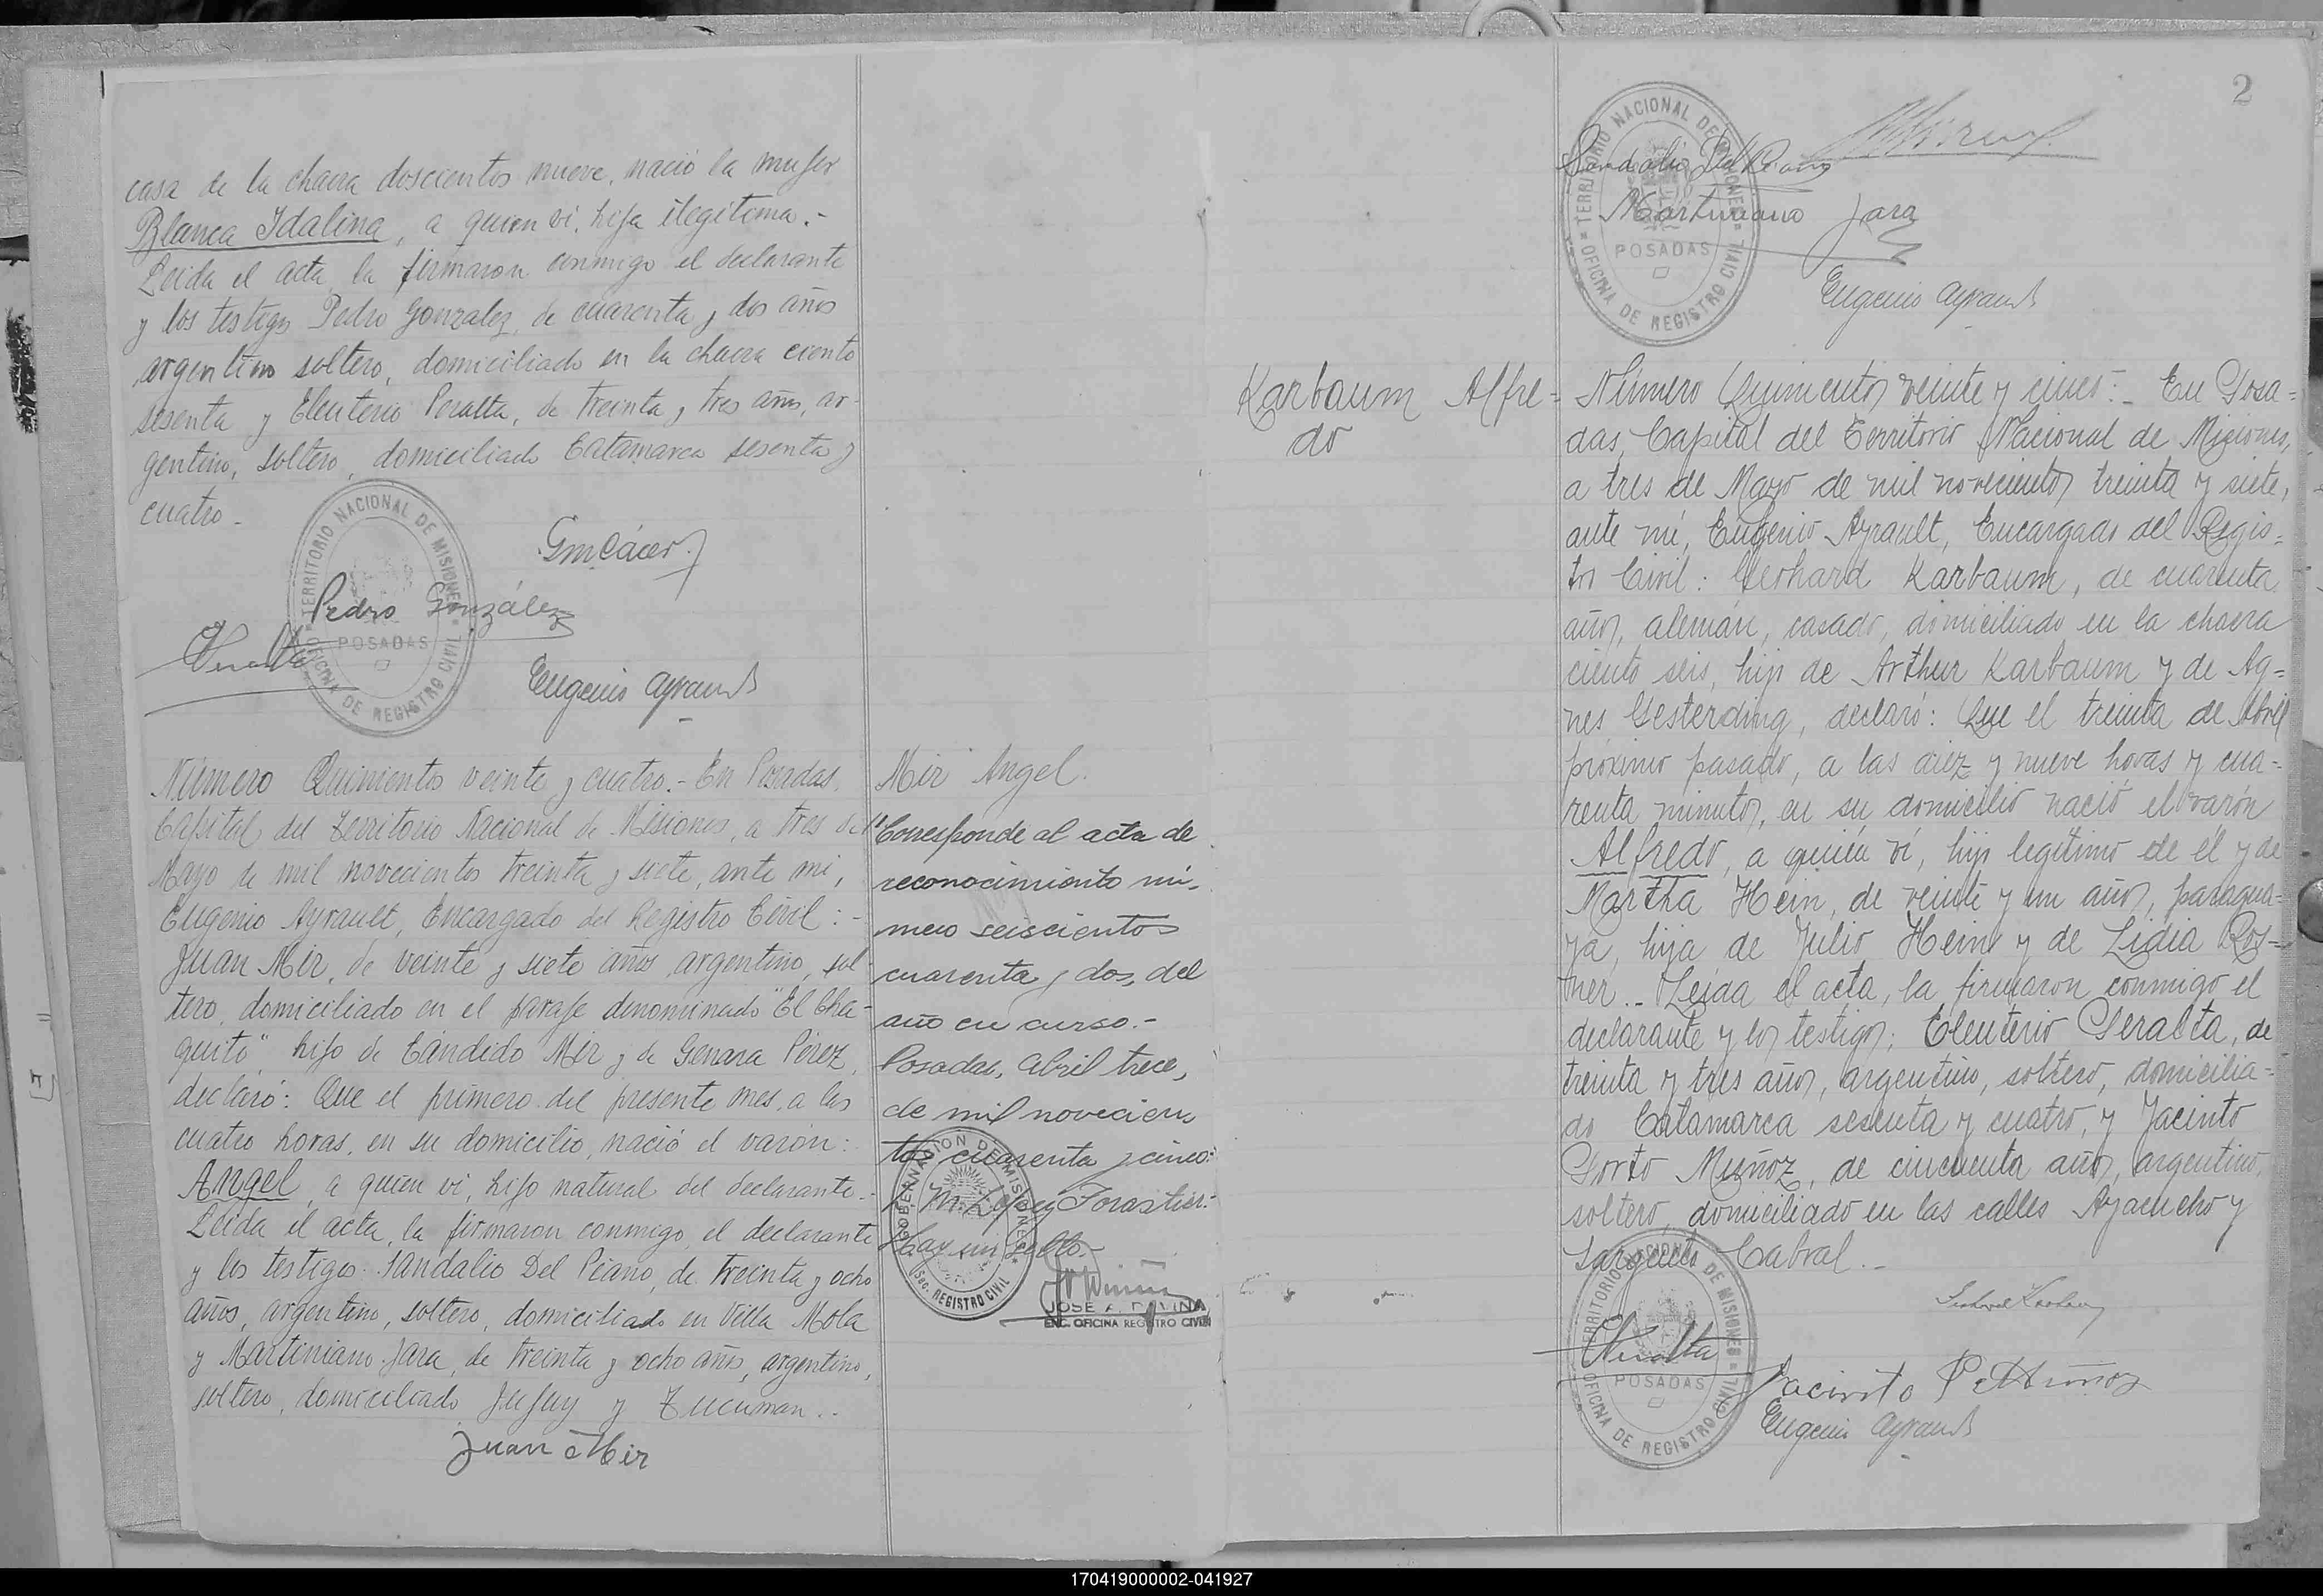 casa de la chacra doscientos nueve, nació la mujer
Blanca Idalina, a quien vi, hija ilegítima.-
Leida el acta, la firmaron conmigo el declarante
y los testigos Pedro Gonzalez, de cuarenta y dos años
argentino soltero, domiciliado en la chacra ciento
sesenta y Eleuterio Peralta, de treinta y tres años, ar-
gentino, soltero, domiciliado Catamarca sesenta y
cuatro.-
TERRITORIO NACIONAL DE MISIONES
POSADAS
OFICINA DE REGISTRO CIVIL
Pedro González
Eugenio Ayrault
Número Quinientos veinte y cuatro.- En Posadas,
Capital del Territorio Nacional de Misiones, a tres de
Mayo de mil novecientos treinta y siete, ante mi,
Eugenio Ayrault, Encargado del Registro Civil:-
Juan Mir, de veinte y siete años, argentino, sol-
tero, domiciliado en el paraje denominado "El Cha-
quito" hijo de Cándido Mir y de Genara Pérez,
declaró: Que el primero del presente mes, a las
cuatro horas, en su domicilio, nació el varón:
Angel, a quien vi, hijo natural del declarante.-
Leida el acta, la firmaron conmigo, el declarante
y los testigos: Sandalio Del Piano, de treinta y ocho
años, argentino, soltero, domiciliado en Villa Mola
y Martiniano Jara, de treinta y ocho años, argentino,
soltero, domiciliado Jujuy y Tucuman.-
Juan Mir
Mir Angel.
Corresponde al acta de
reconocimiento nú-
mero seiscientos
cuarenta y dos, del
año en curso.-
Posadas, Abril trece,
de mil novecien
tos cuarenta y cinco:
Hay un sello.-
GOBERNACION DE MISIONES
SEC. REGISTRO CIVIL
JOSE
ENC. OFICINA REGISTRO CIVIL
2
TERRITORIO NACIONAL DE MISIONES
POSADAS
OFICINA DE REGISTRO CIVIL
Sandalio Del Piano
Martiniano Jara
Eugenio Ayrault
Karbaum Alfre-
do
Número Quinientos veinte y cinco:- En Posa-
das, Capital del Territorio Nacional de Misiones,
a tres de Mayo de mil novecientos treinta y siete,
ante mí, Eugenio Ayrault, Encargado del Regis-
tro Civil: Gerhard Karbaum, de cuarenta
años, alemán, casado, domiciliado en la chacra
ciento seis, hijo de Arthur Karbaum y de Ag-
nes Gesterding, declaró: Que el treinta de Abril
próximo pasado, a las diez y nueve horas y cua-
renta minutos, en su domicilio nació el varón
Alfredo, a quién ví, hijo legítimo de él y de
Martha Hein, de veinte y un años, paragua-
ya, hija de Julio Hein y de Lidia Ros-
ner.- Leída el acta, la firmaron conmigo el
declarante y los testigos: Eleuterio Peralta, de
treinta y tres años, argentino, soltero, domicilia-
do Catamarca sesenta y cuatro, y Jacinto
Porto Muñoz, de cincuenta años, argentino,
soltero, domiciliado en las calles Ayacucho y
Sargento Cabral.-
TERRITORIO NACIONAL DE MISIONES
POSADAS
OFICINA DE REGISTRO CIVIL
Jacinto P. Muñoz
Eugenio Ayrault
170419000002-041927